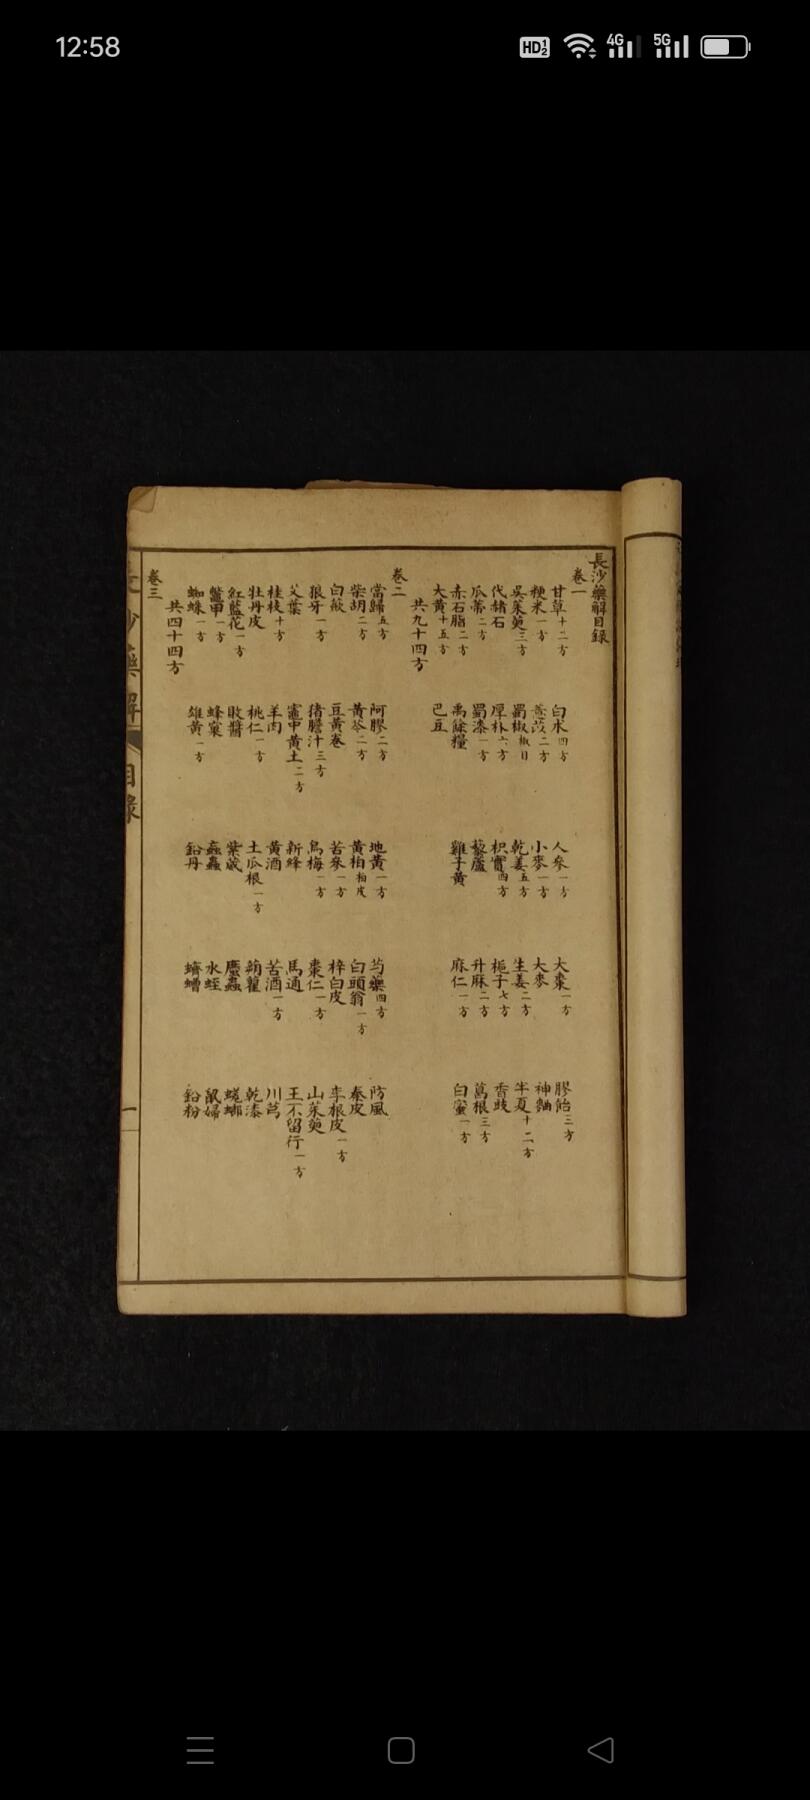 12:58
HD
4G
5G
長沙藥解目錄
卷一
甘草十二方 白朮四方 人參一方 大棗一方 膠飴三方
粳米一方 薏苡二方 小麥一方 大麥 神麯
吳茱萸三方 蜀椒椒目 乾姜五方 生姜二方 半夏十二方
代赭石 厚朴六方 枳實四方 梔子七方 香豉
瓜蒂二方 蜀漆一方 藜蘆 升麻二方 葛根三方
赤石脂二方 禹餘糧 雞子黃 麻仁一方 白蜜一方
大黃十五方 巴豆
共九十四方
卷二
當歸五方 阿膠二方 地黃一方 芍藥四方 防風
柴胡二方 黃芩二方 黃柏柏皮 白頭翁一方 秦皮
白蘞 豆黃卷 苦參一方 梓白皮 李根皮一方
狼牙一方 猪膽汁三方 烏梅一方 棗仁一方 山茱萸
艾葉 竈中黃土二方 新絳 馬通 王不留行一方
桂枝十方 羊肉 黃酒 苦酒一方 川芎
牡丹皮 桃仁一方 土瓜根一方 蒴藋 乾漆
紅藍花一方 敗醬 紫葳 䗪蟲 蜣螂
鱉甲一方 蜂窠 蝱蟲 水蛭 鼠婦
蜘蛛一方 雄黃一方 鉛丹 蠐螬 鉛粉
共四十四方
卷三
長沙藥解
目錄
一